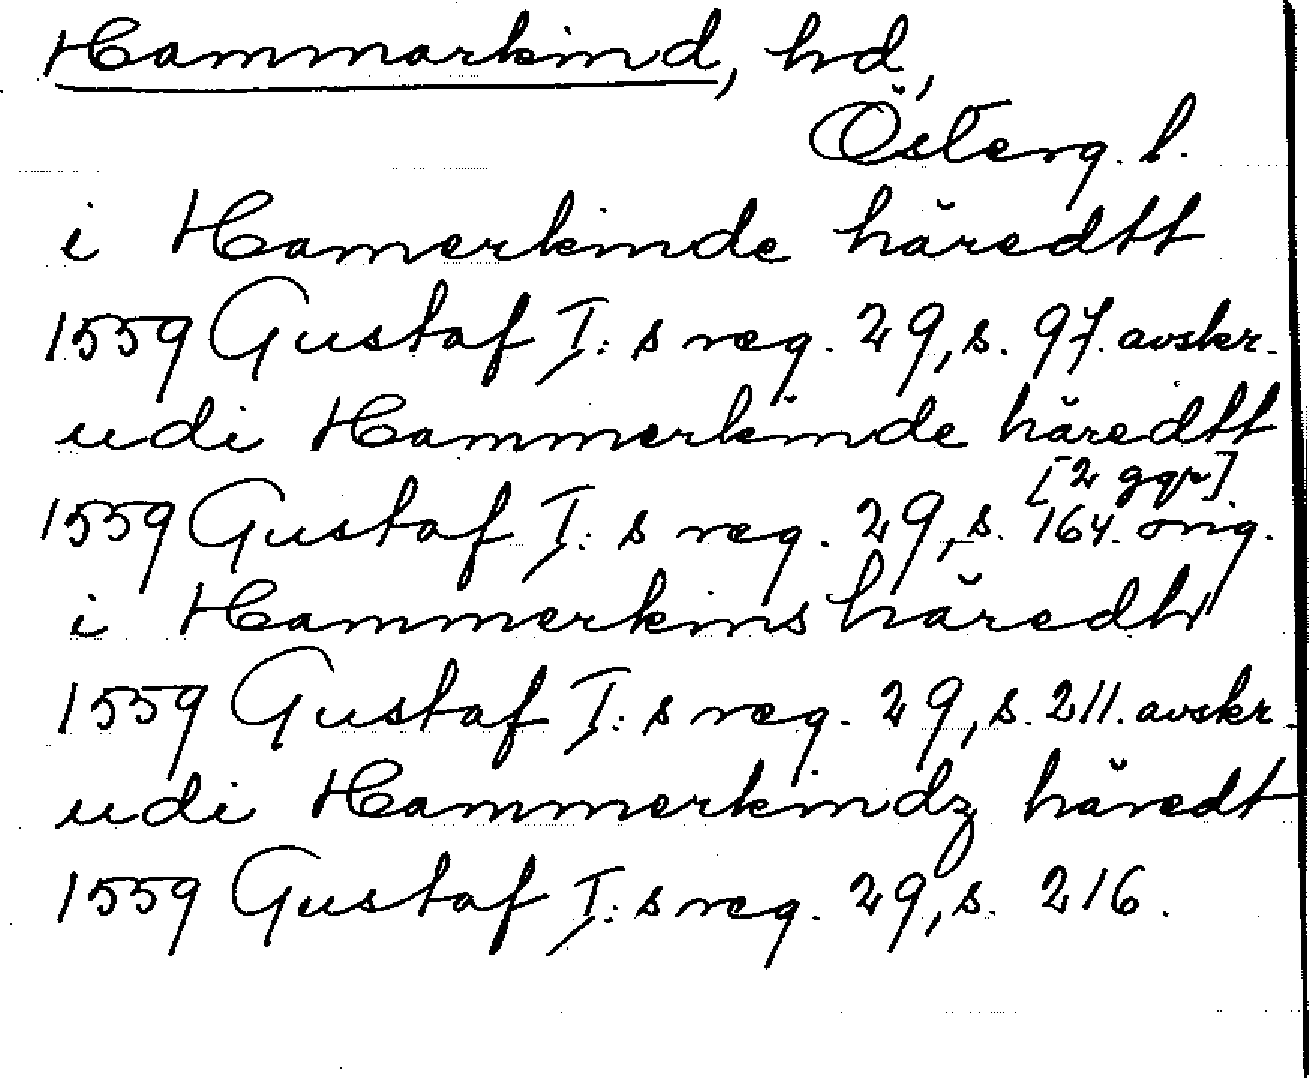 Hammarkind, hd,
Österg. l.
i Hamerkinde häredtt
1559 Gustaf I:s reg. 29, s. 97. avskr.
udi Hammerkinde häredtt
[2 ggr]
1559 Gustaf I:s reg. 29, s. 164. orig.
i Hammerkins häredh
1559 Gustaf I:s reg. 29, s. 211. avskr.
udi Hammerkindz häredt
1559 Gustaf I:s reg. 29, s. 216.